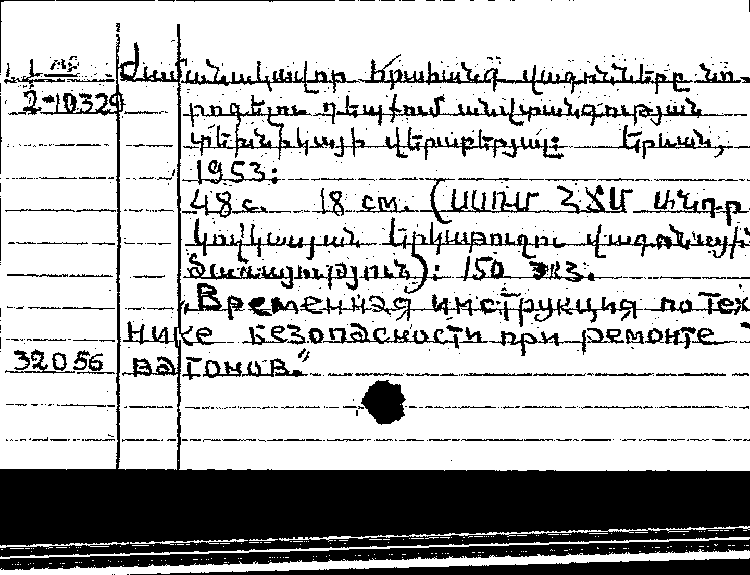 Ժամանակավոր հրահանգ վագոնները նո-
2-10329 րոգելու դեպքում անվտանգության
տեխնիկայի վերաբերյալ: Երևան,
1953:
48 с. 18 см. (ՍՍՌՄ ՀՃՄ Անդր
կովկասյան երկաթուղու վագոնային
ծառայություն): 150 экз.
„Временная инструкция по тех
нике безопасности при ремонте
32056 вагонов.“